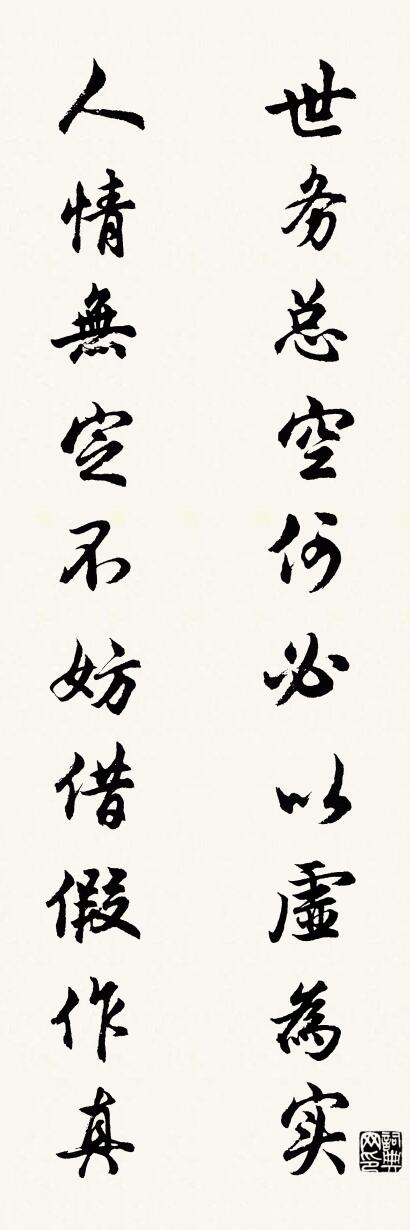 世务总空何必以虚為实
人情無定不妨借假作真